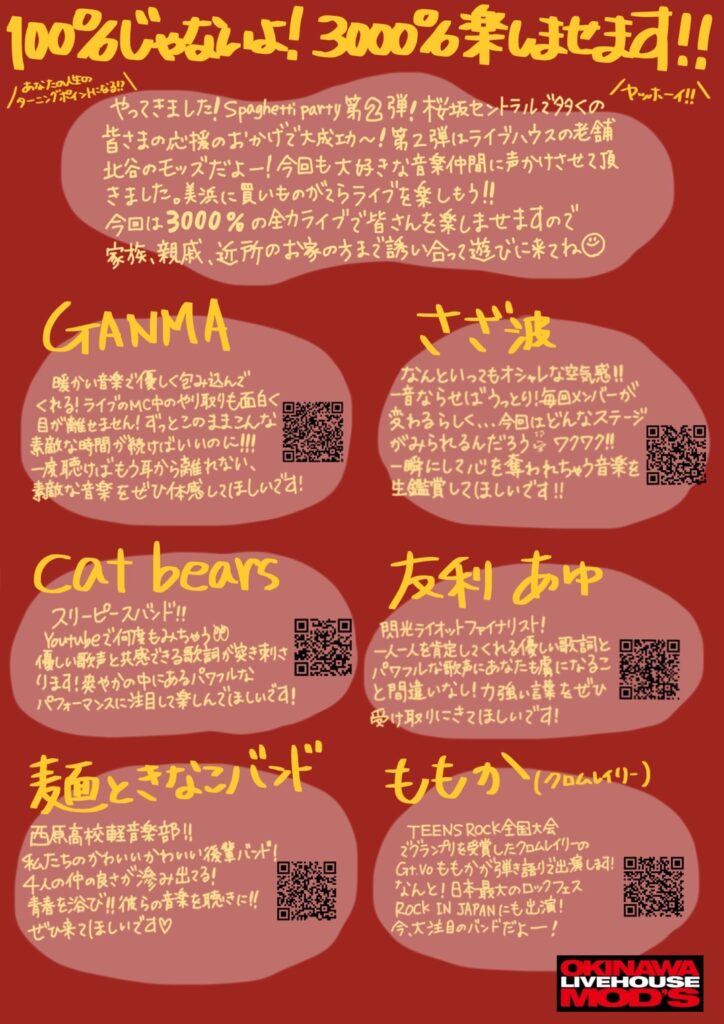 100%じゃないよ!3000%楽しませます!!
あなたの人生の
ターニングポイントになる!?
ヤッホーイ!!
やってきました!Spaghetti party 第2弾!桜坂セントラルで多くの
皆さまの応援のおかげで大成功〜!第2弾はライブハウスの老舗
北谷のモッズだよー!今回も大好きな音楽仲間に声かけさせて頂
きました。美浜に買いものがてらライブを楽しもう!!
今回は3000%の全力ライブで皆さんを楽しませますので
家族、親戚、近所のお家の方まで誘い合って遊びに来てね
GANMA
暖かい音楽で優しく包み込んで
くれる!ライブのMC中のやり取りも面白く
目が離せません!ずっとこのままこんな
素敵な時間が続けばいいのに!!!
一度聴けばもう耳から離れない、
素敵な音楽をぜひ体感してほしいです!
さざ波
なんといってもオシャレな空気感!!
一音ならせばうっとり!毎回メンバーが
変わるらしく...今回はどんなステージ
がみられるんだろう ワクワク!!
一瞬にして心を奪われちゃう音楽を
生鑑賞してほしいです!!
cat bears
スリーピースバンド!!
Youtubeで何度もみちゃう
優しい歌声と共感できる歌詞が突き刺さ
ります!爽やかの中にあるパワフルな
パフォーマンスに注目して楽しんでほしいです!
友利 あゆ
閃光ライオットファイナリスト!
一人一人を肯定してくれる優しい歌詞と
パワフルな歌声にあなたも虜になるこ
と間違いなし!力強い言葉をぜひ
受け取りにきてほしいです!
麺ときなこバンド
西原高校軽音楽部!!
私たちのかわいいかわいい後輩バンド!
4人の仲の良さが滲み出てる!
青春を浴び!!彼らの音楽を聴きに!!
ぜひ来てほしいです♡
ももか(クロムレイリー)
TEENS ROCK全国大会
でグランプリを受賞したクロムレイリーの
Gt.Voももかが弾き語りで出演します!
なんと!日本最大のロックフェス
ROCK IN JAPANにも出演!
今、大注目のバンドだよー!
OKINAWA
LIVEHOUSE
MOD'S